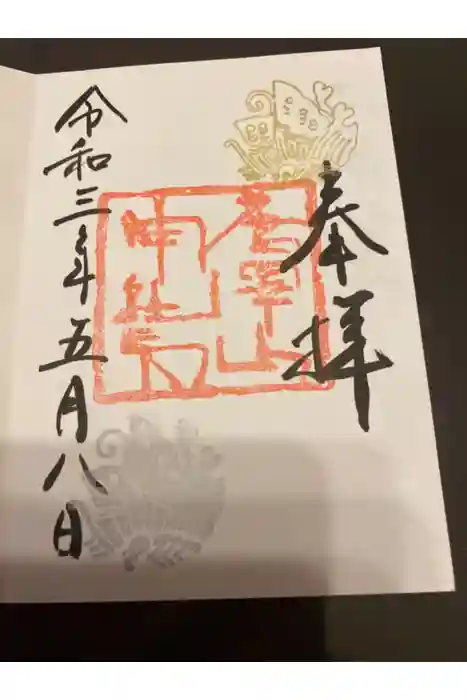 奉拝
令和三年五月八日